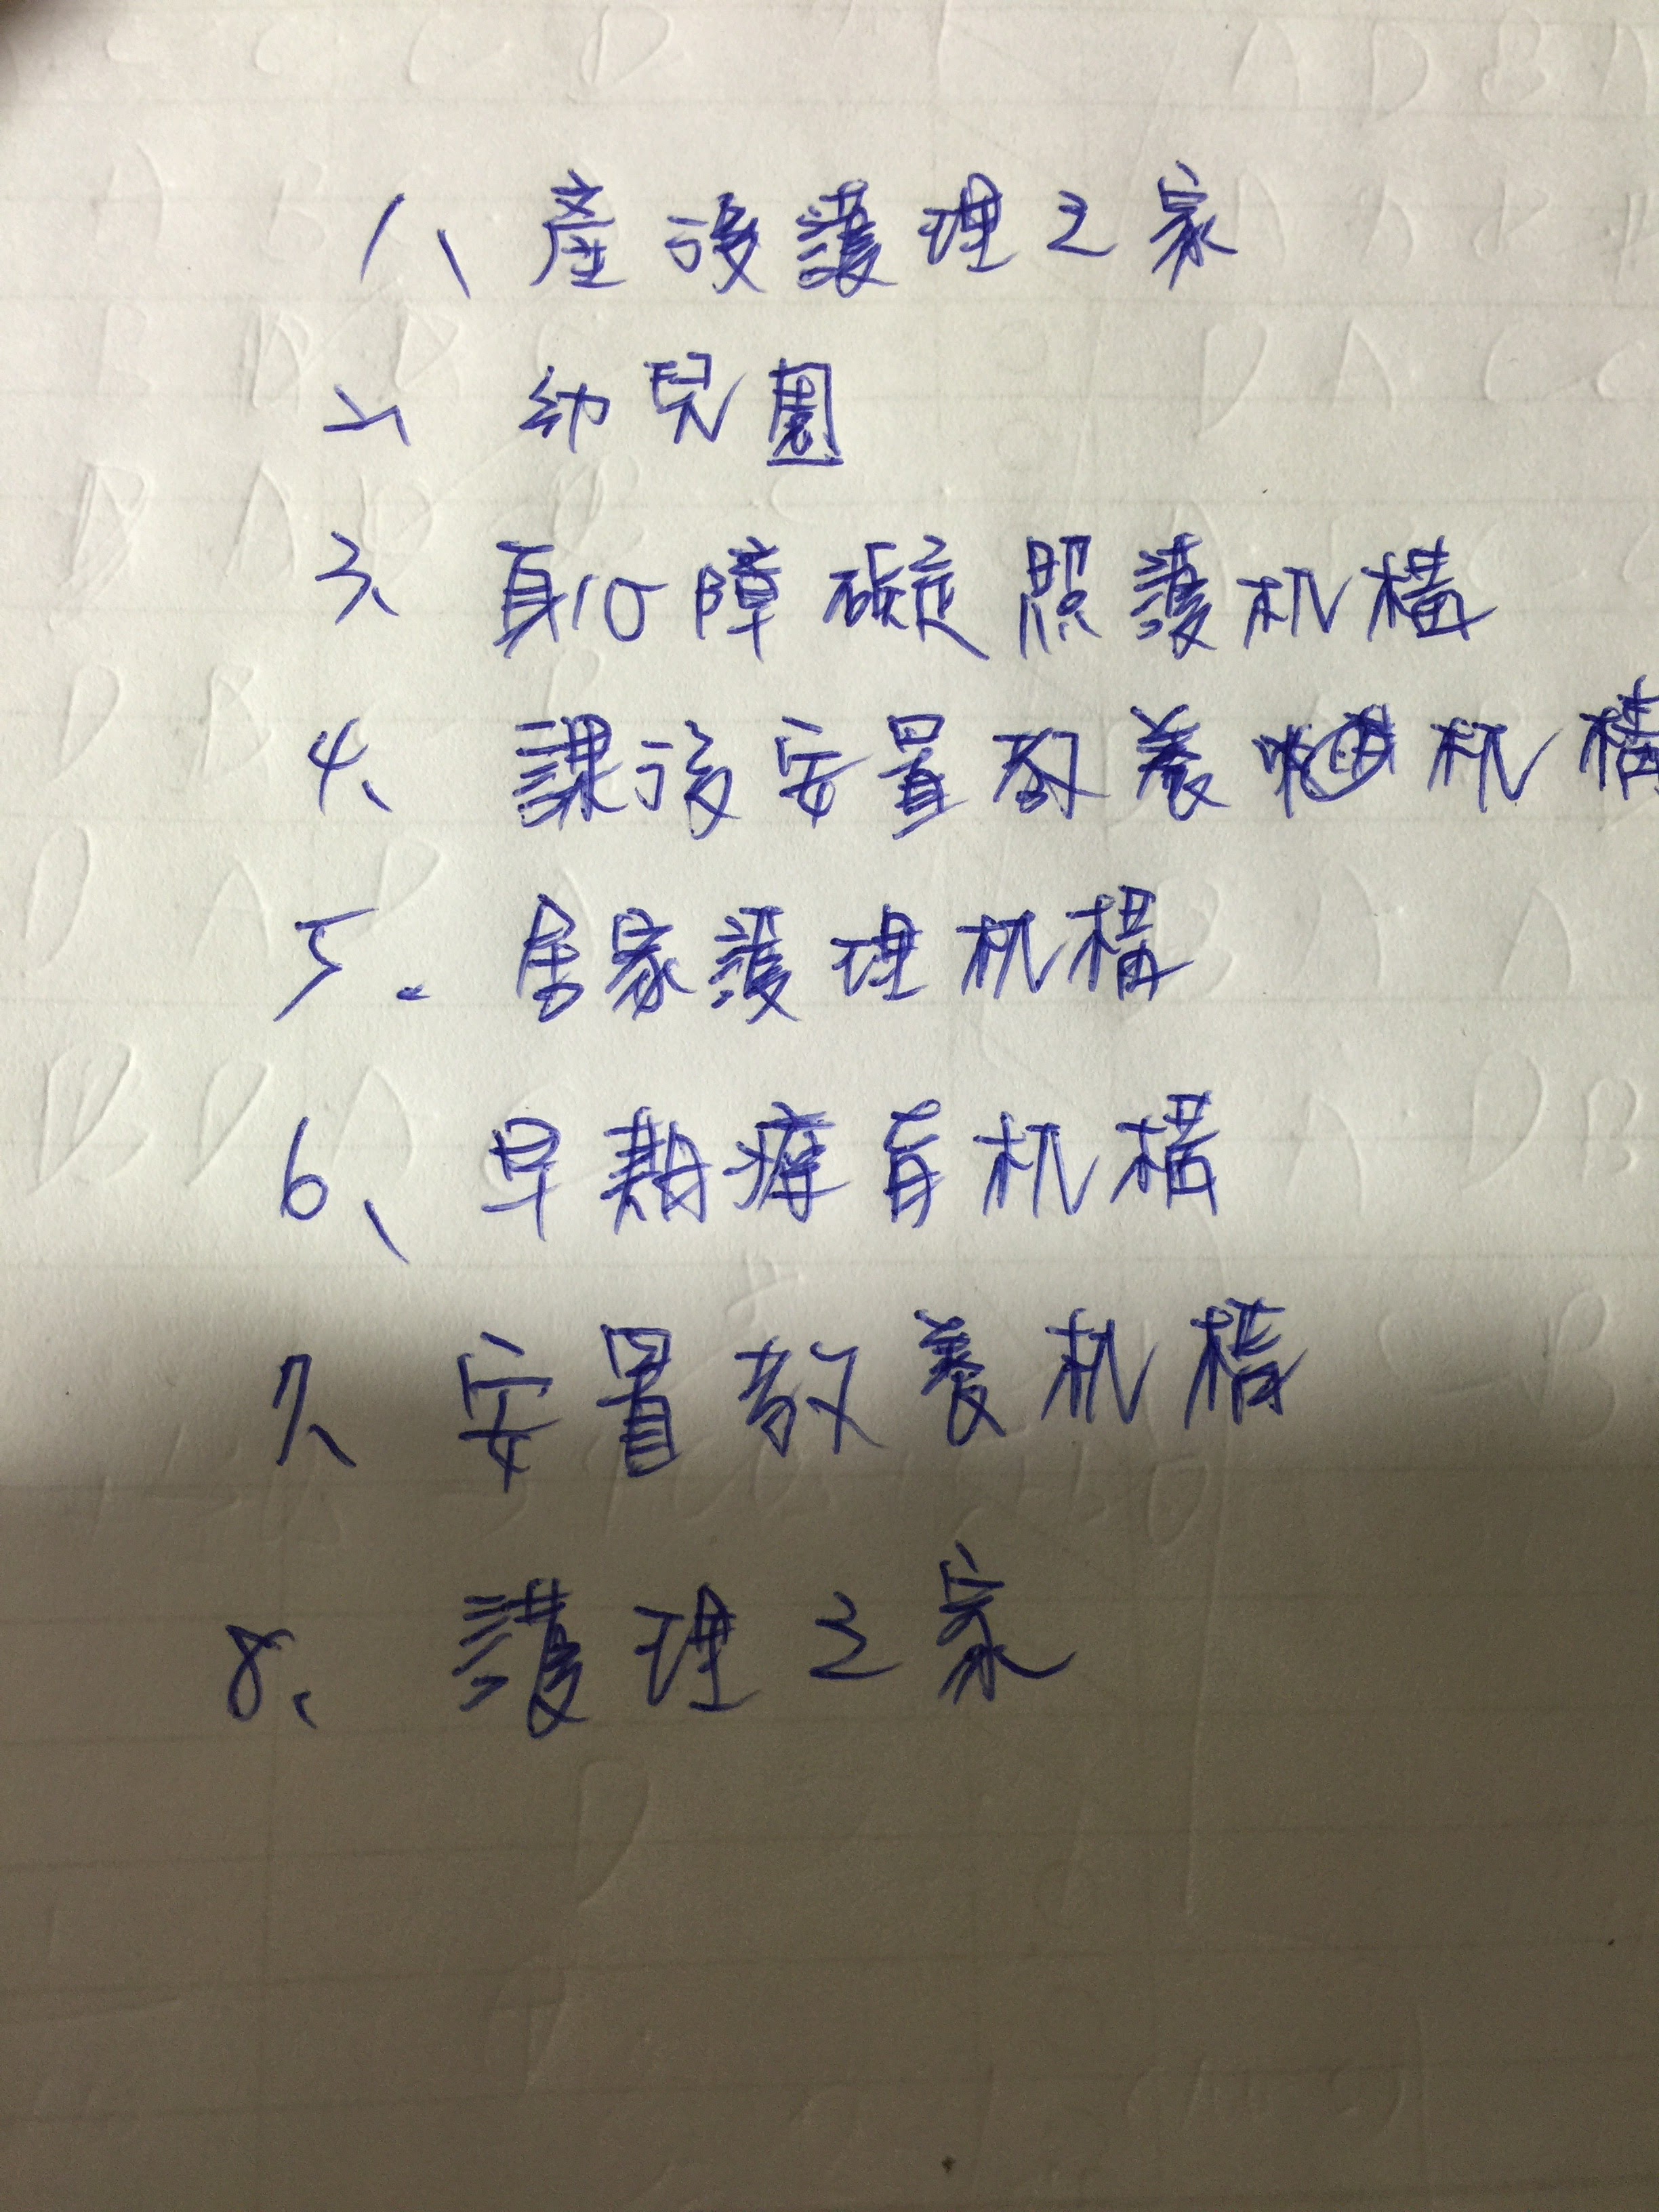 1、產後護理之家
2、幼兒園
3、身心障礙照護机構
4、課後安置教養机構
5.居家護理机構
6、早期療育机構
7、安置教養机構
8、護理之家